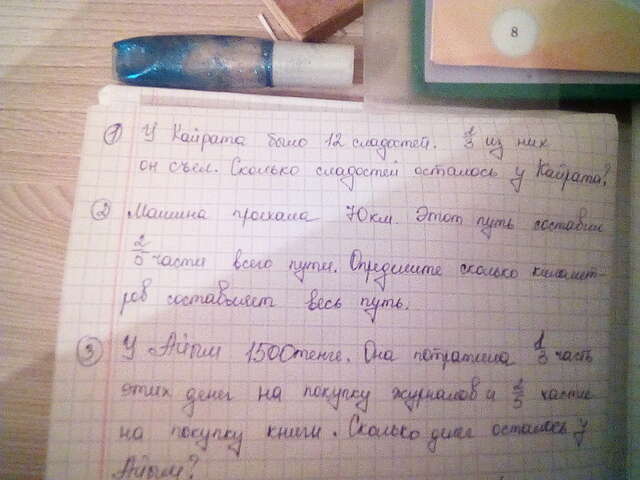 8
① У Кайрата было 12 сладостей. 1/3 из них
он съел. Сколько сладостей осталось у Кайрата?
② Машина проехала 70 км. Этот путь составил
2/5 части всего пути. Определите сколько километ-
ров составляет весь путь.
③ У Айым 1500 тенге. Она потратила 1/3 часть
этих денег на покупку журналов и 2/5 части
на покупку книги. Сколько денег осталось у
Айым?